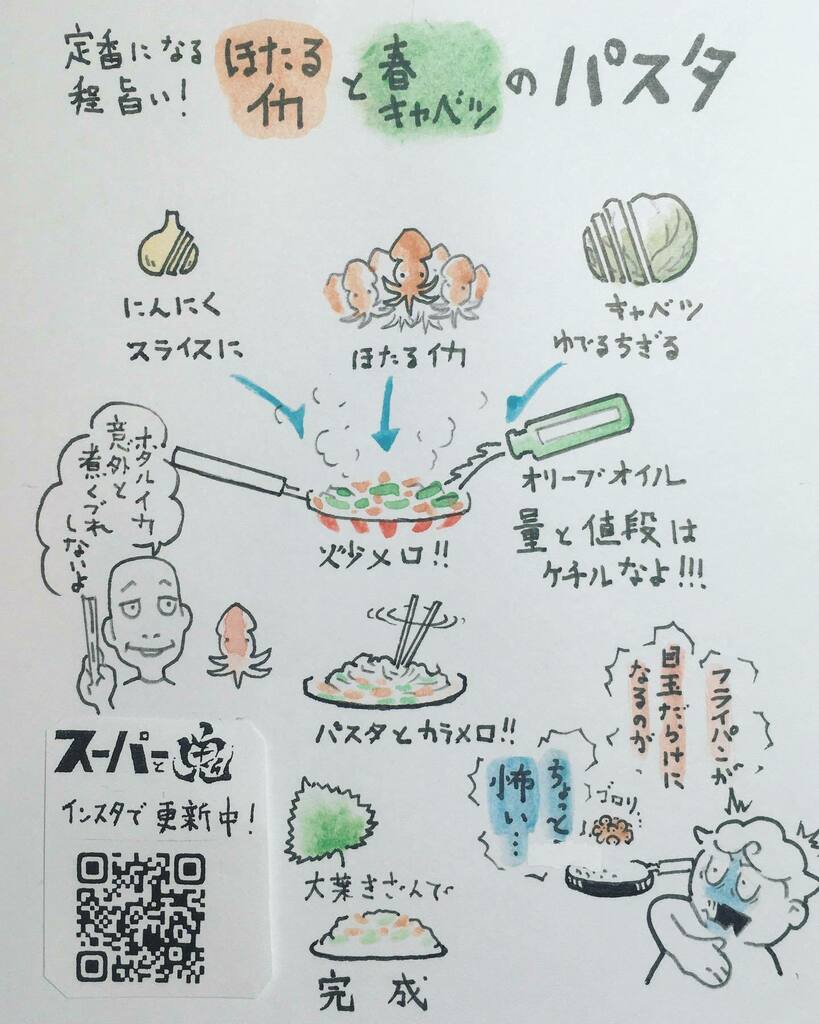 定番になる
程旨い!
ほたる
イカ
と
春
キャベツ
の
パスタ
にんにく
スライスに
ほたるイカ
キャベツ
ゆでるちぎる
オリーブオイル
量と値段は
ケチルなよ!!!
炒メロ!!
ホタルイカ
意外と
煮くずれ
しないよ
パスタとカラメロ!!
フライパンが
目玉だらけに
なるのが
ちょっと
怖い…
ゴロリ…
スーパーと鬼
インスタで更新中!
大葉きざんで
完成